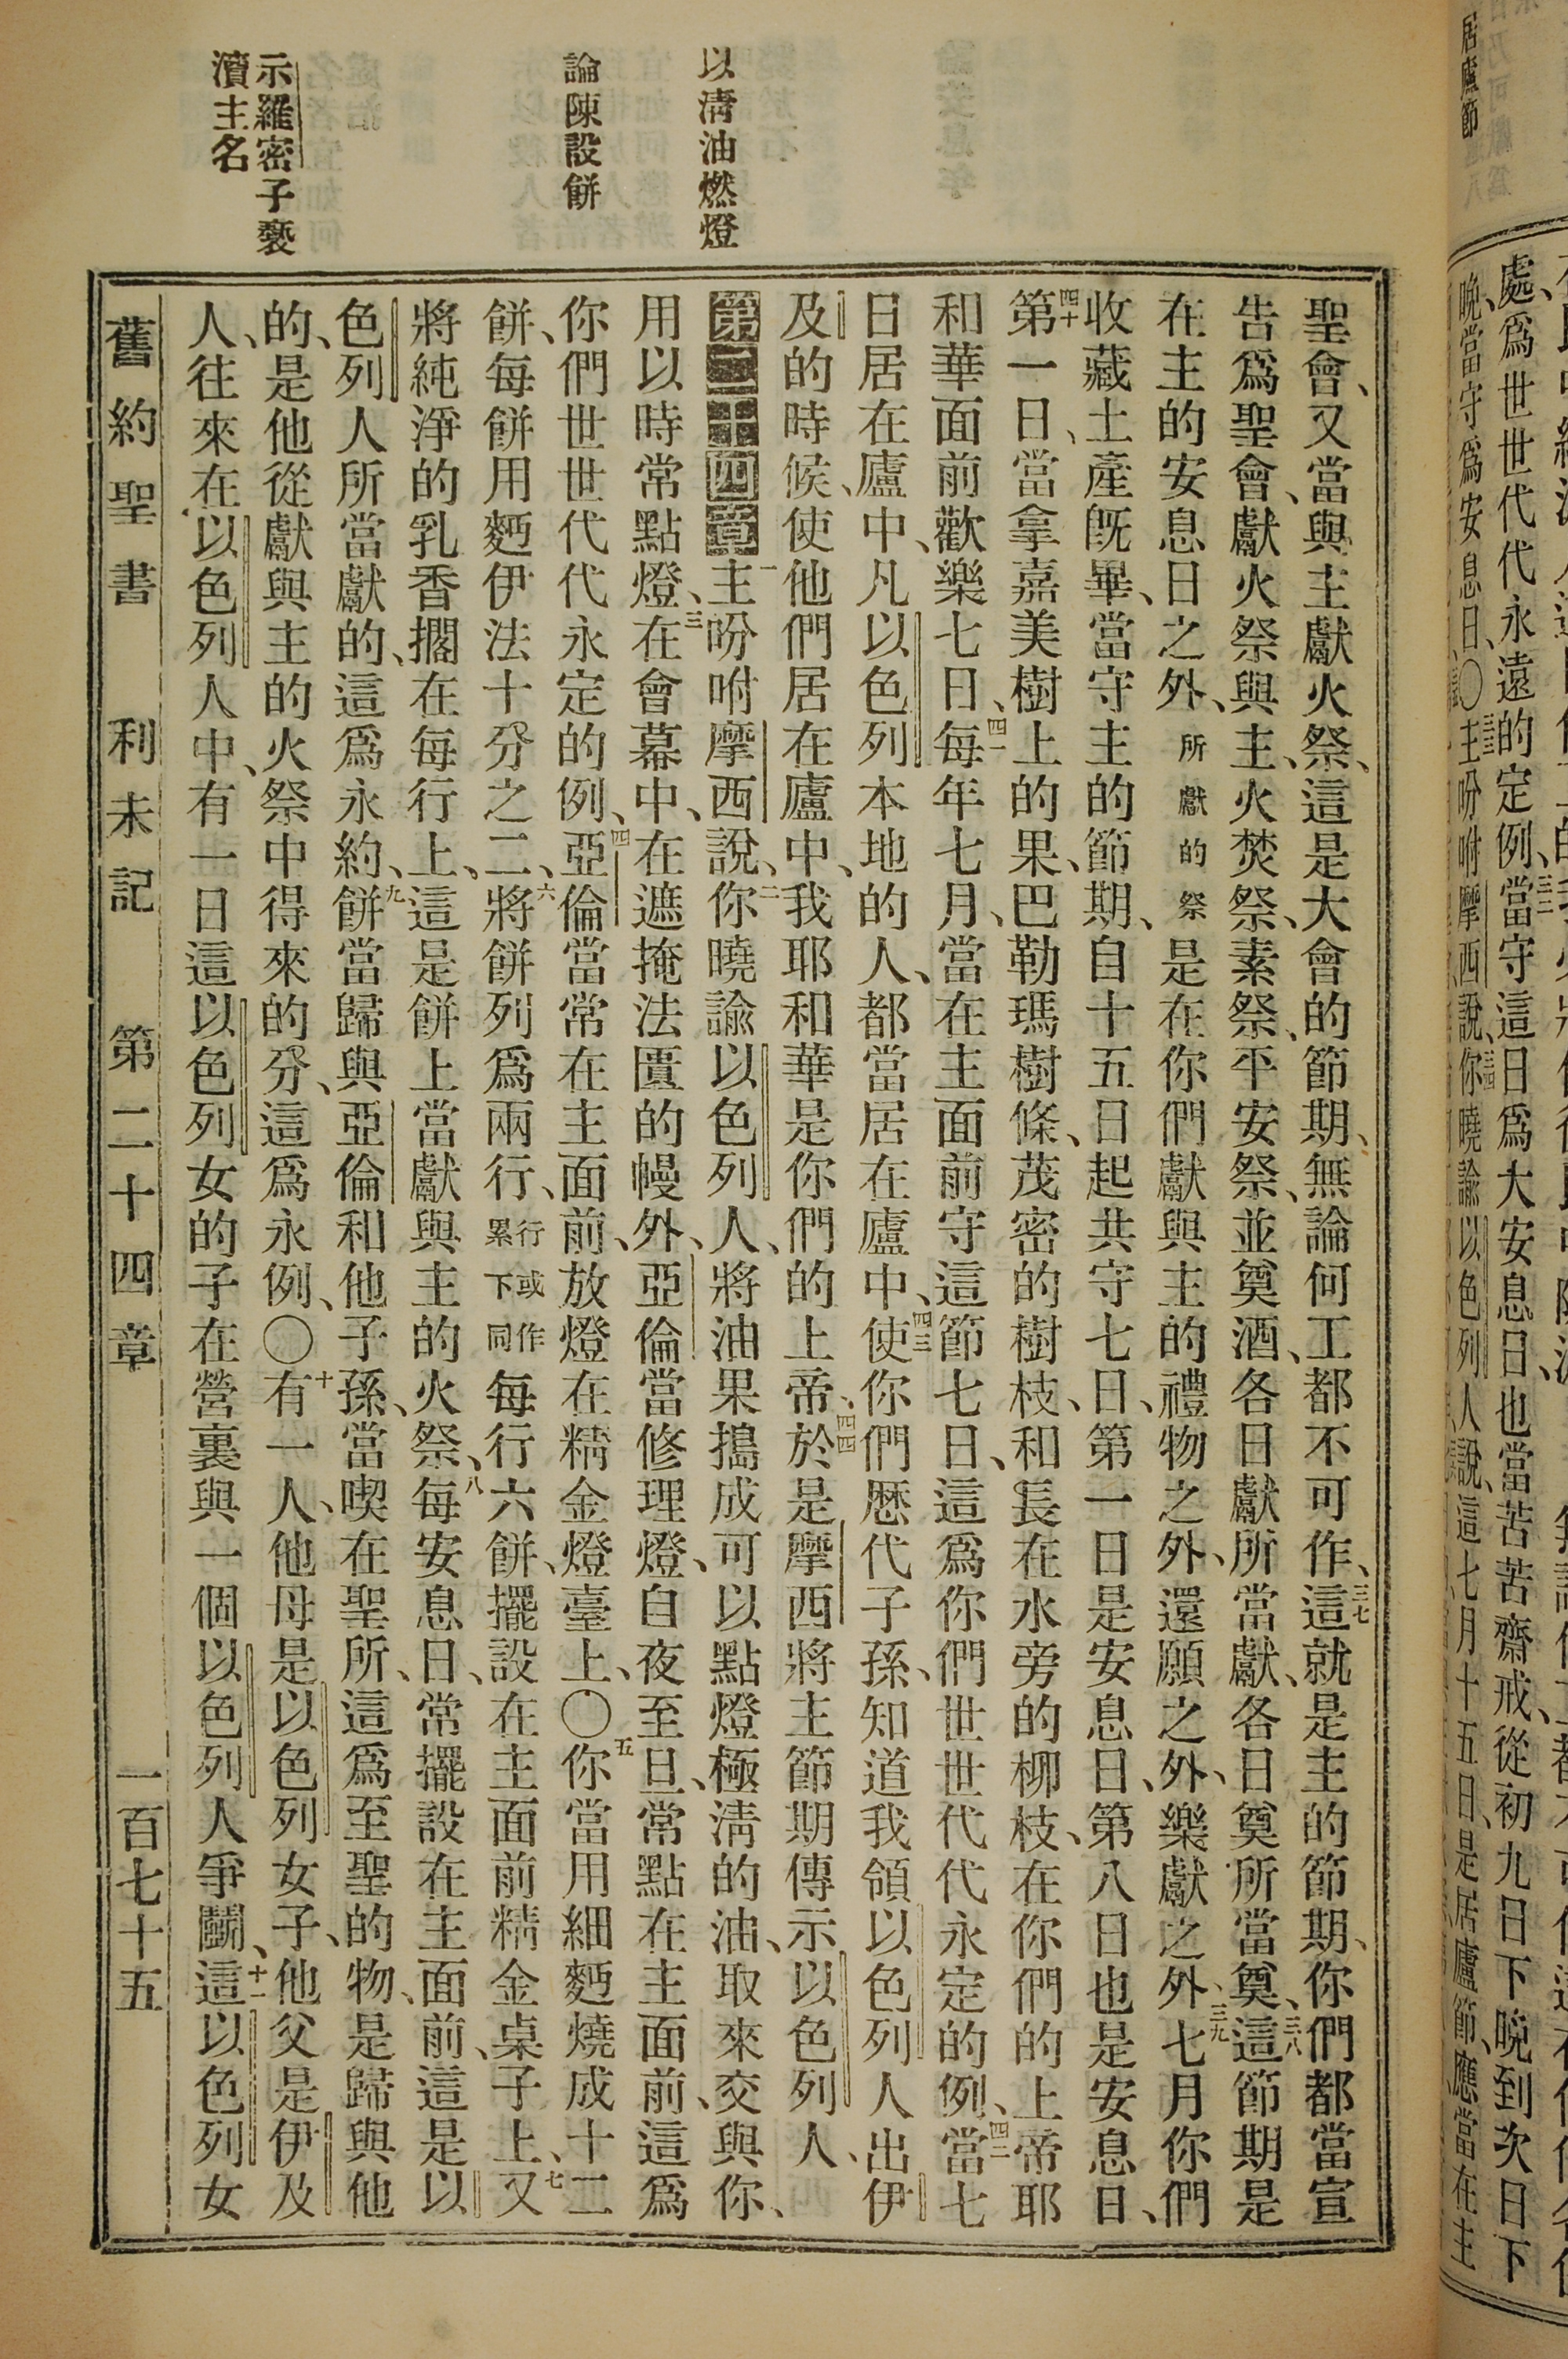 以淸油燃燈
論陳設餅
示羅密子褻
瀆主名
聖會、又當與主獻火祭、這是大會的節期、無論何工都不可作、三七這就是主的節期、你們都當宣
告爲聖會、獻火祭與主、火焚祭、素祭、平安祭、並奠酒、各日獻所當獻、各日奠所當奠、三八這節期是
在主的安息日之外、所獻的祭是在你們獻與主的禮物之外、還願之外、樂獻之外、三九七月你們
收藏土產旣畢、當守主的節期、自十五日起共守七日、第一日是安息日、第八日也是安息日、
四十第一日、當拿嘉美樹上的果、巴勒瑪樹條、茂密的樹枝、和長在水旁的柳枝、在你們的上帝耶
和華面前歡樂七日、四一每年七月、當在主面前守這節七日、這爲你們世世代代永定的例、四二當七
日居在廬中、凡以色列本地的人、都當居在廬中、四三使你們歷代子孫、知道我領以色列人出伊
及的時候、使他們居在廬中、我耶和華是你們的上帝、四四於是摩西將主節期傳示以色列人、
第二十四章一主吩咐摩西說、二你曉諭以色列人、將油果搗成可以點燈極淸的油、取來交與你、
用以時常點燈、三在會幕中、在遮掩法匱的幔外、亞倫當修理燈、自夜至旦、常點在主面前、這爲
你們世世代代永定的例、四亞倫當常在主面前、放燈在精金燈臺上、〇五你當用細麪燒成十二
餅、每餅用麪伊法十分之二、六將餅列爲兩行、行或作累下同每行六餅、擺設在主面前精金桌子上、七又
將純淨的乳香擱在每行上、這是餅上當獻與主的火祭、八每安息日、常擺設在主面前、這是以
色列人所當獻的、這爲永約、九餅當歸與亞倫和他子孫、當喫在聖所、這爲至聖的物、是歸與他
的、是他從獻與主的火祭中得來的分、這爲永例、〇十有一人、他母是以色列女子、他父是伊及
人、往來在以色列人中、有一日這以色列女的子在營裏與一個以色列人爭鬭、十一這以色列女
舊約聖書 利未記 第二十四章 一百七十五
居廬節
處、爲世世代代永遠的定例、三二當守這日爲大安息日、也當苦苦齋戒、從初九日下晚到次日下
晚、當守爲安息日、〇三三主吩咐摩西說、三四你曉諭以色列人說、這七月十五日、是居廬節、應當在主